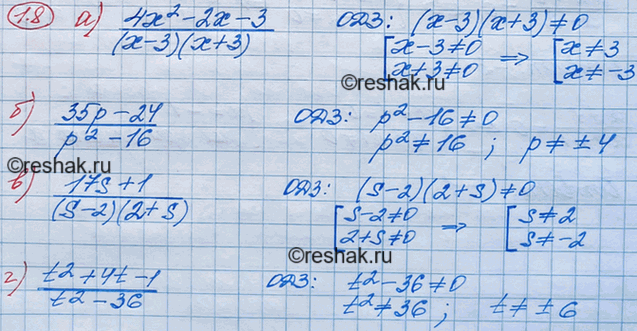 1.8 а) (4x² - 2x - 3)/((x-3)(x+3)) ОДЗ: (x-3)(x+3) ≠ 0
[x-3≠0 ⇒ [x≠3
x+3≠0 x≠-3
©reshak.ru
б) (35p - 24)/(p² - 16) ОДЗ: p² - 16 ≠ 0
p² ≠ 16 ; p ≠ ±4
©reshak.ru
в) (17s + 1)/((s-2)(2+s)) ОДЗ: (s-2)(2+s) ≠ 0
[s-2≠0 ⇒ [s≠2
2+s≠0 s≠-2
©reshak.ru
г) (t² + 4t - 1)/(t² - 36) ОДЗ: t² - 36 ≠ 0
t² ≠ 36 ; t ≠ ±6